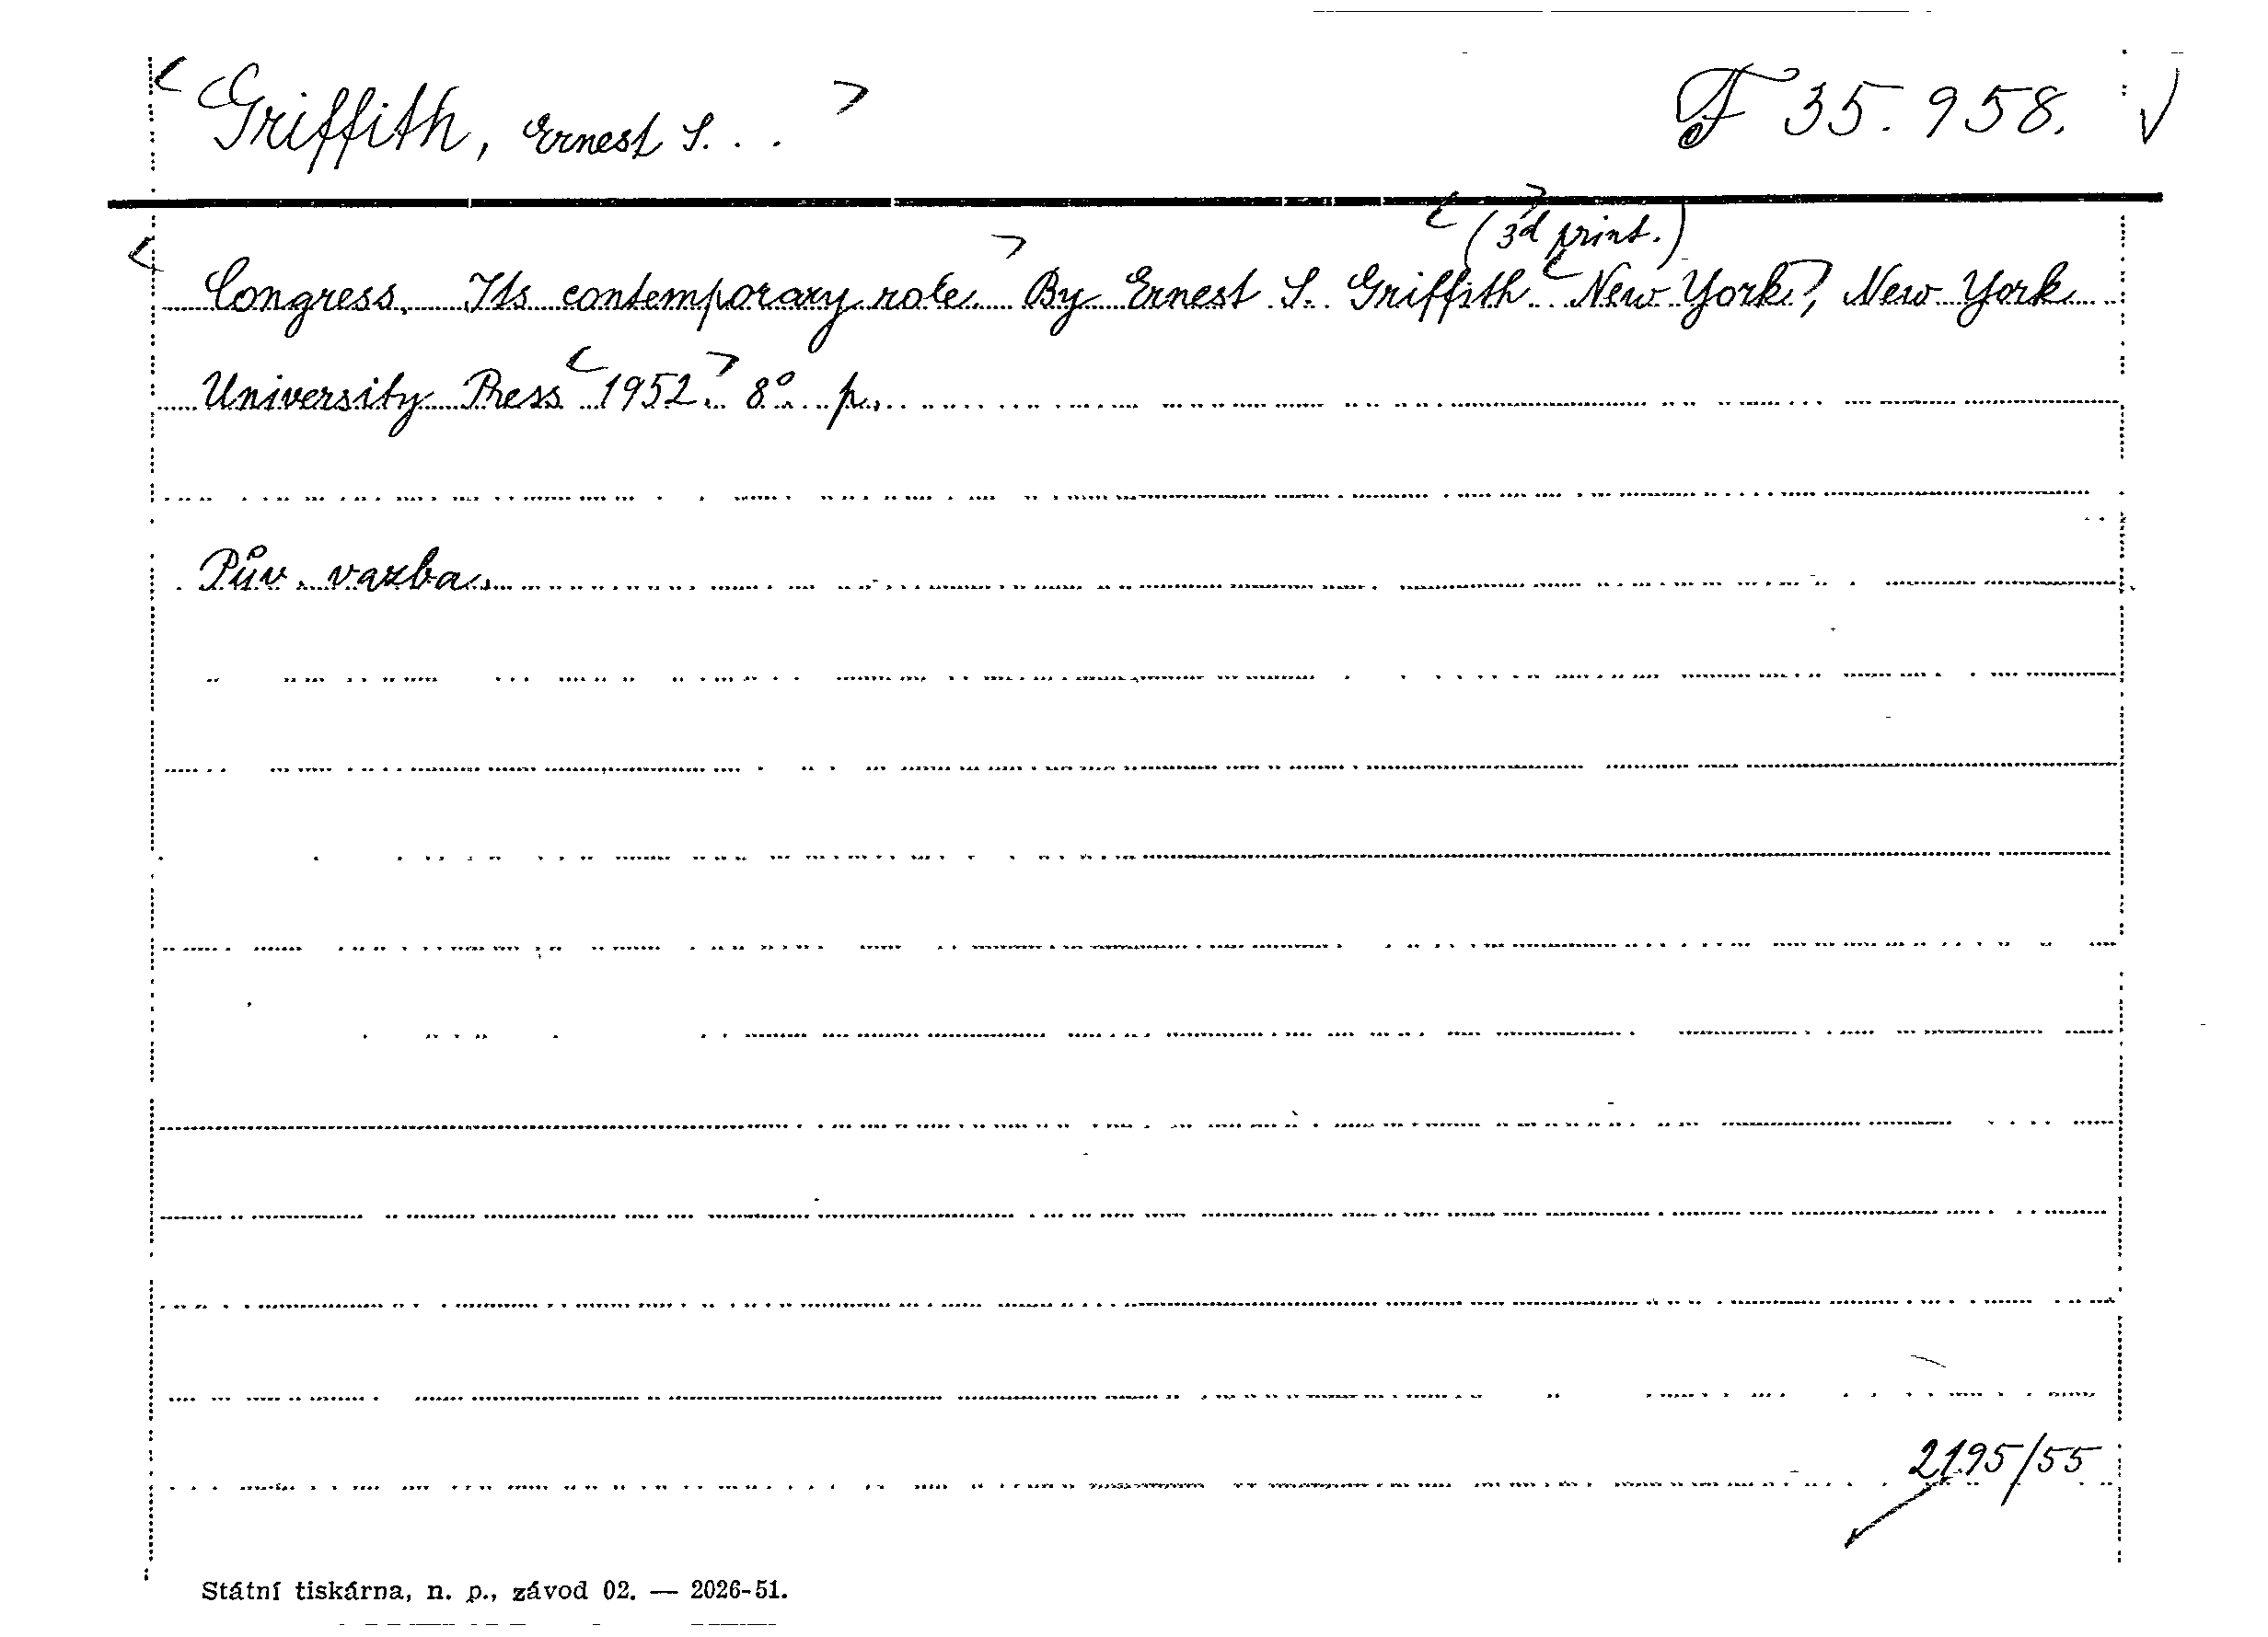 Griffith, Ernest S... F 35.958.
(3d print.)
Congress. Its contemporary role. By Ernest S. Griffith. New York, New York
University Press 1952. 8°. p.
Pův. vazba.
2195/55
Státní tiskárna, n. p., závod 02. — 2026-51.